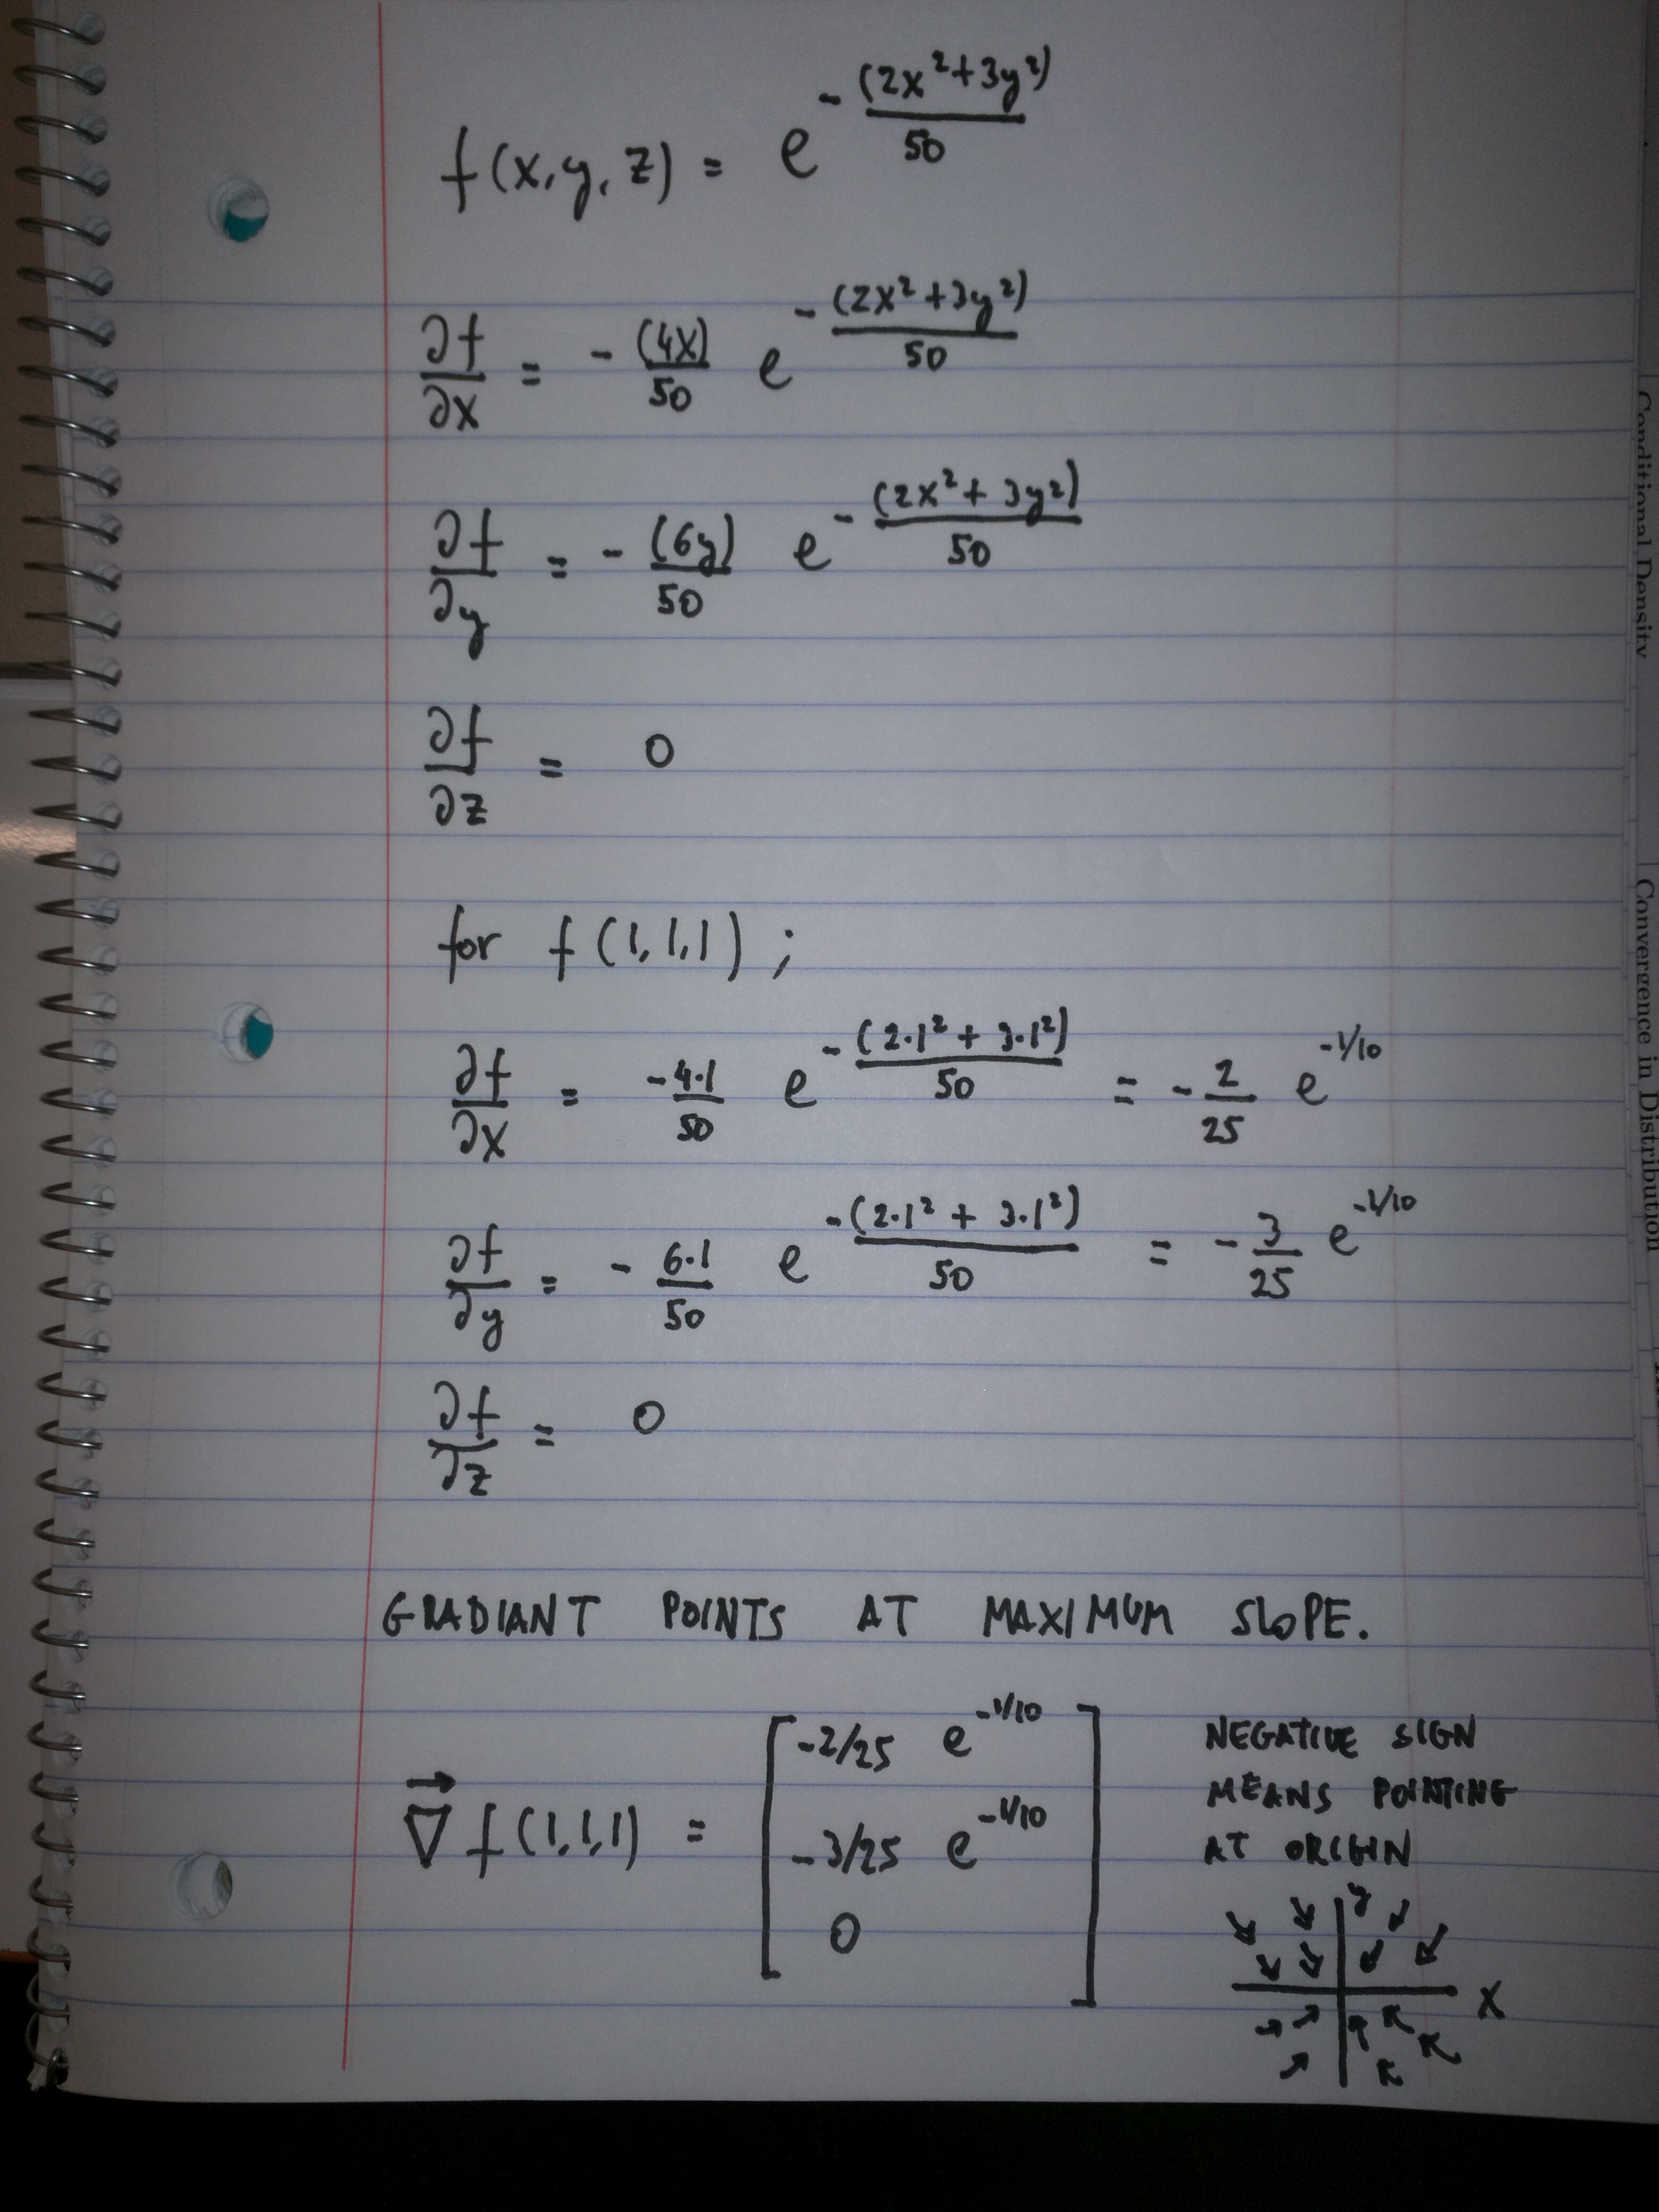 f(x,y,z) = e^{-\frac{(2x^2+3y^2)}{50}}
\frac{∂f}{∂x} = -\frac{(4x)}{50} e^{-\frac{(2x^2+3y^2)}{50}}
\frac{∂f}{∂y} = -\frac{(6y)}{50} e^{-\frac{(2x^2+3y^2)}{50}}
\frac{∂f}{∂z} = 0
for f(1,1,1);
\frac{∂f}{∂x} = \frac{-4·1}{50} e^{-\frac{(2·1^2+3·1^2)}{50}} = -\frac{2}{25} e^{-1/10}
\frac{∂f}{∂y} = -\frac{6·1}{50} e^{-\frac{(2·1^2+3·1^2)}{50}} = -\frac{3}{25} e^{-1/10}
\frac{∂f}{∂z} = 0
GRADIANT POINTS AT MAXIMUM SLOPE.
\vec{∇} f(1,1,1) = [-2/25 e^{-1/10}
-3/25 e^{-1/10}
0]
NEGATIVE SIGN
MEANS POINTING
AT ORIGIN
y
x
Conditional Density
Convergence in Distribution